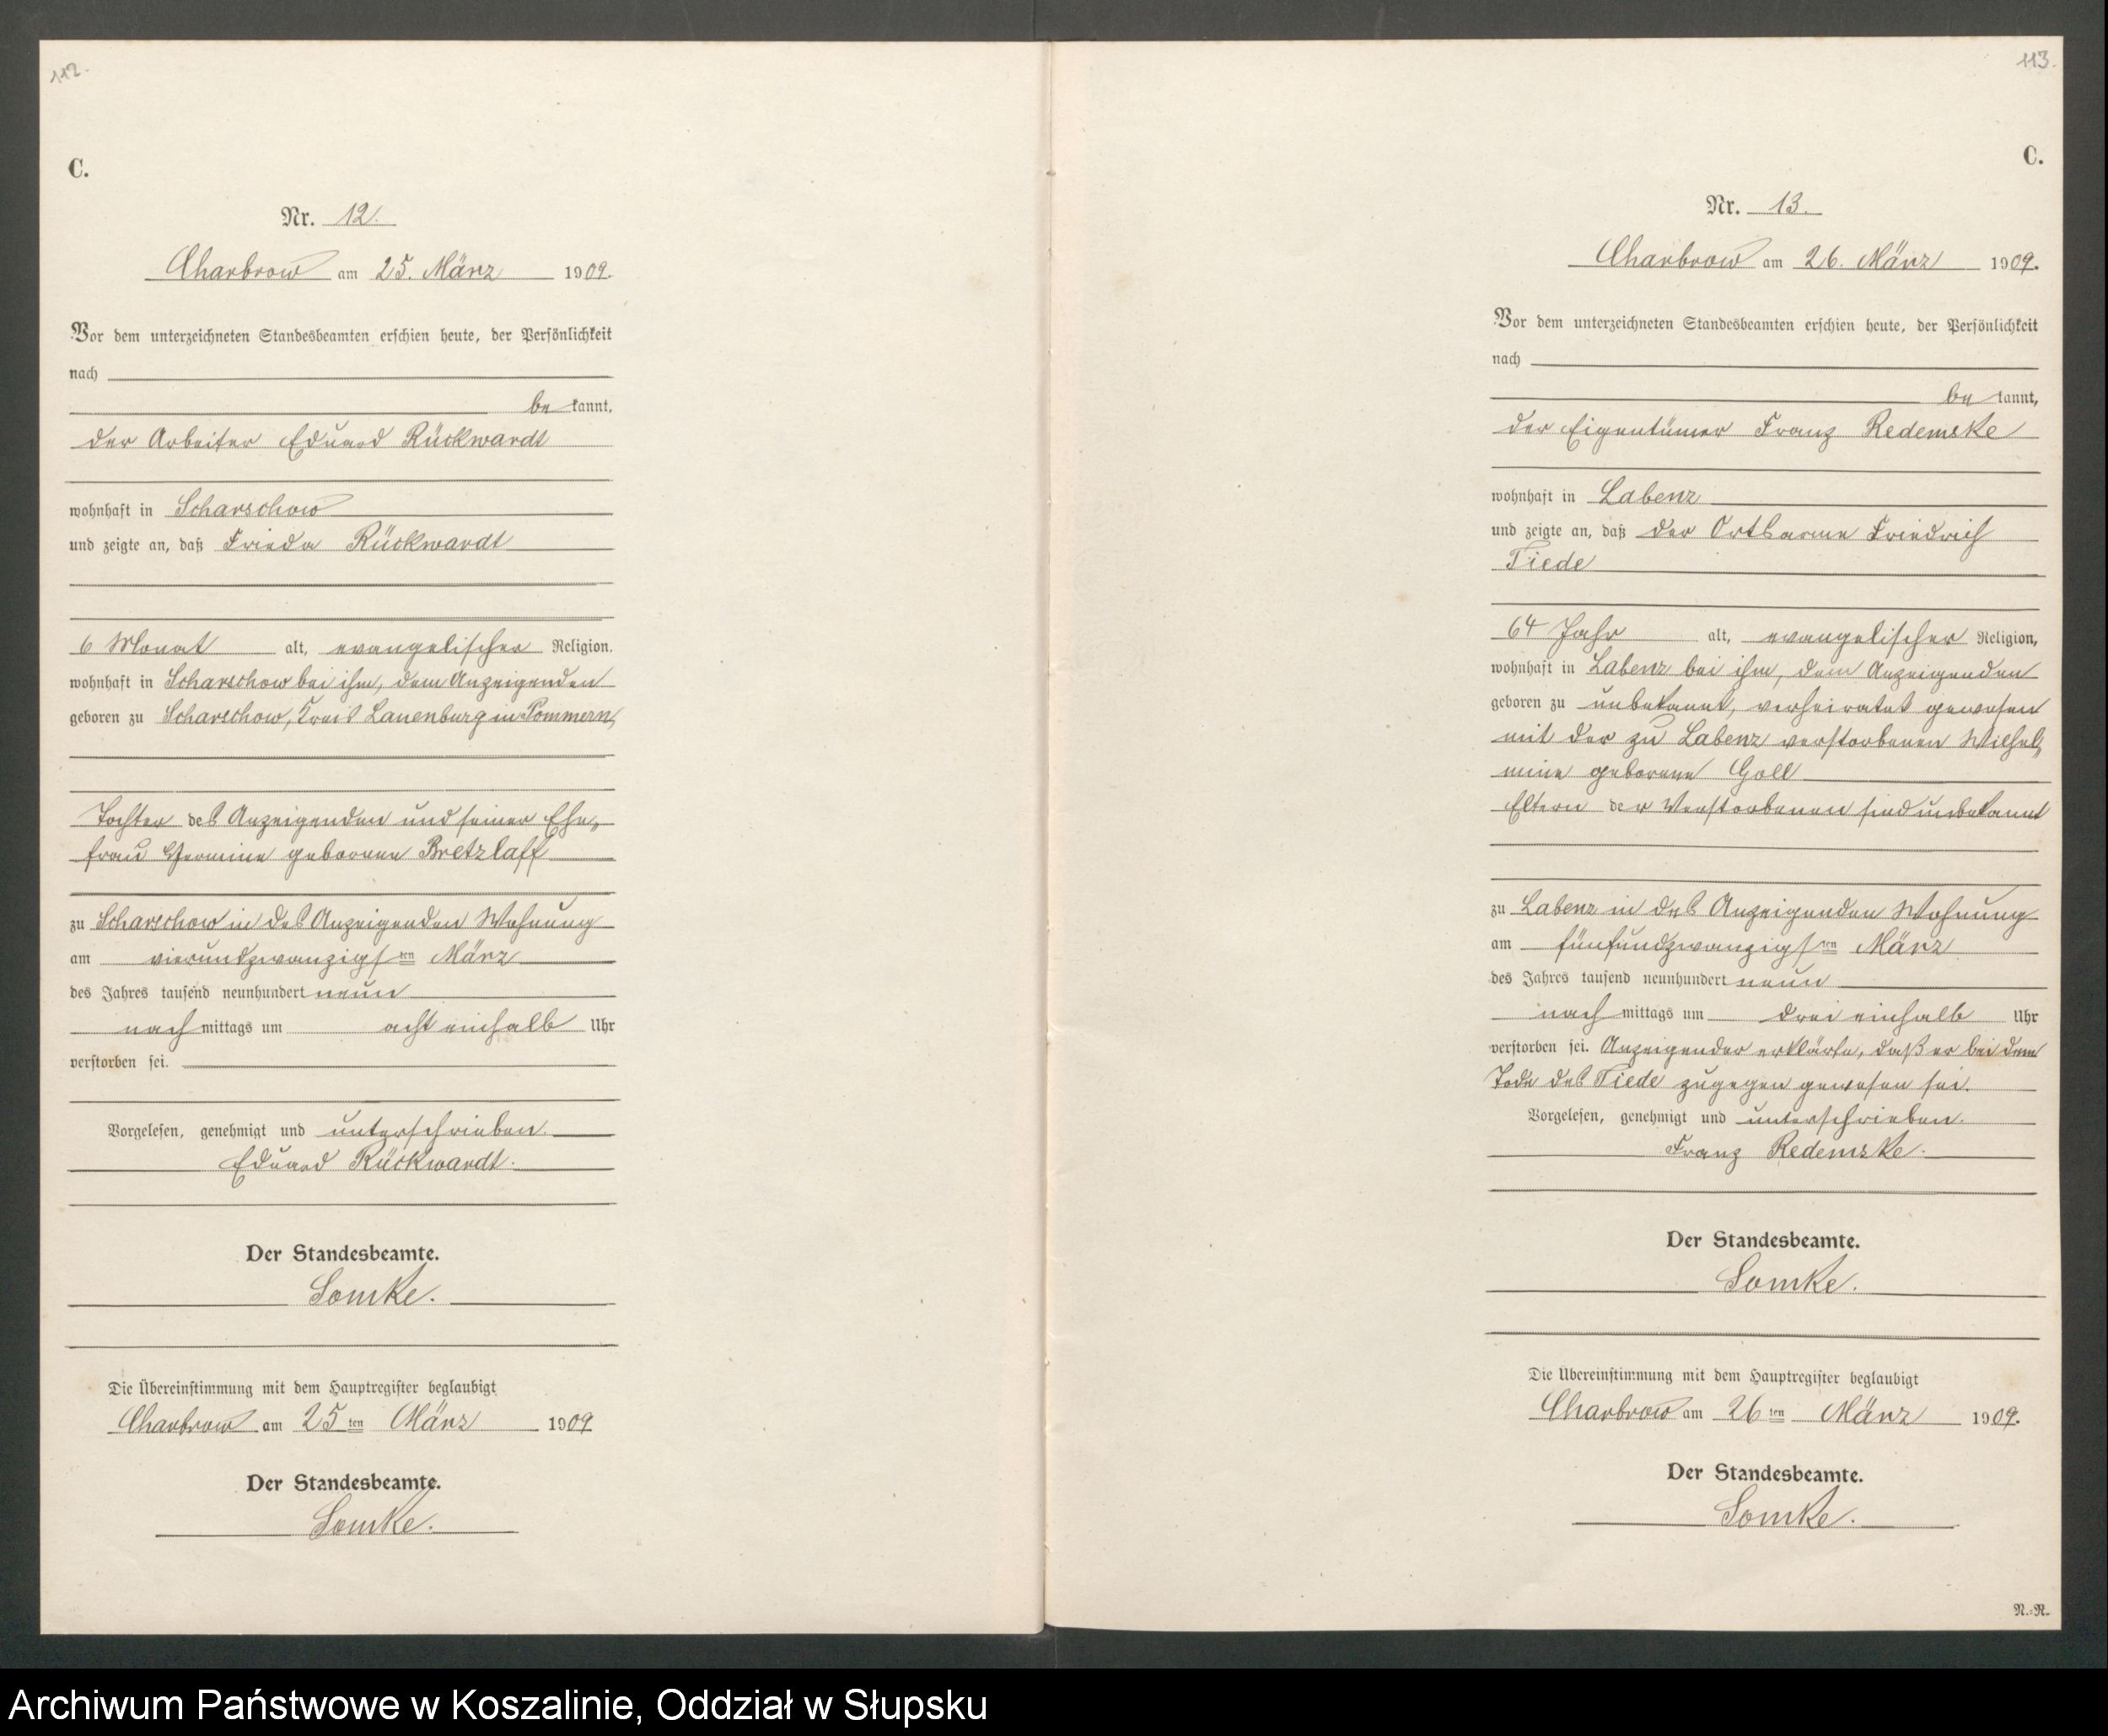 112.
C.
Nr. 12.
Charbrow am 25. März 1909.
Vor dem unterzeichneten Standesbeamten erschien heute, der Persönlichkeit
nach
be kannt,
der Arbeiter Eduard Rückwardt
wohnhaft in Scharschow
und zeigte an, daß Frieda Rückwardt
6 Monat alt, evangelischer Religion,
wohnhaft in Scharschow bei ihm, dem Anzeigenden
geboren zu Scharschow, Kreis Lauenburg in Pommern,
Tochter des Anzeigenden und seiner Ehe-
frau Hermine geborene Bretzlaff
zu Scharschow in des Anzeigenden Wohnung
am vierundzwanzigsten März
des Jahres tausend neunhundert neun
nach mittags um acht einhalb Uhr
verstorben sei.
Vorgelesen, genehmigt und unterschrieben.
Eduard Rückwardt.
Der Standesbeamte.
Somke.
Die Übereinstimmung mit dem Hauptregister beglaubigt
Charbrow am 25ten März 1909
Der Standesbeamte.
Somke.
113.
C.
Nr. 13.
Charbrow am 26. März 1909.
Vor dem unterzeichneten Standesbeamten erschien heute, der Persönlichkeit
nach
be kannt,
der Eigentümer Franz Redemske
wohnhaft in Labenz
und zeigte an, daß der Ortsarme Friedrich
Tiede
64 Jahr alt, evangelischer Religion,
wohnhaft in Labenz bei ihm, dem Anzeigenden
geboren zu unbekannt, verheiratet gewesen
mit der zu Labenz verstorbenen Wilhel-
mine geborene Goll
Eltern der Verstorbenen sind unbekannt
zu Labenz in des Anzeigenden Wohnung
am fünfundzwanzigsten März
des Jahres tausend neunhundert neun
nach mittags um drei einhalb Uhr
verstorben sei. Anzeigender erklärte, daß er bei dem
Tode des Tiede zugegen gewesen sei.
Vorgelesen, genehmigt und unterschrieben.
Franz Redemske.
Der Standesbeamte.
Somke.
Die Übereinstimmung mit dem Hauptregister beglaubigt
Charbrow am 26ten März 1909.
Der Standesbeamte.
Somke.
N.-R.
Archiwum Państwowe w Koszalinie, Oddział w Słupsku